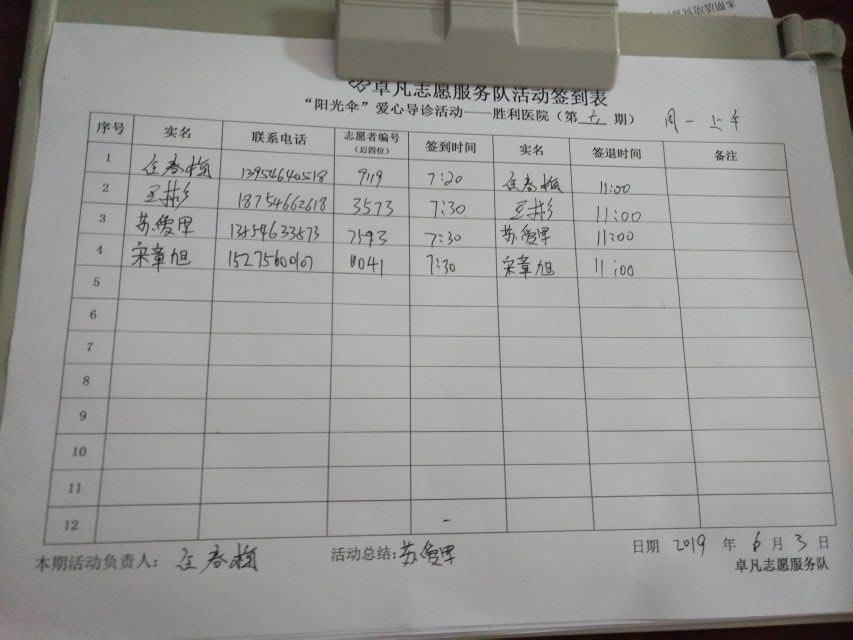 卓凡志愿服务队活动签到表
“阳光伞”爱心导诊活动——胜利医院（第 六 期） 周一上午
序号 实名 联系电话 志愿者编号（后四位） 签到时间 实名 签退时间 备注
1 任春梅 13954640518 9119 7:20 任春梅 11:00
2 王彬 18754662618 3573 7:30 王彬 11:00
3 苏俊军 13454633573 7593 7:30 苏俊军 11:00
4 宋章旭 0041 7:30 宋章旭 11:00
5
6
7
8
9
10
11
12
本期活动负责人： 任春梅 活动总结: 苏俊军 日期 2019 年 6 月 3 日
卓凡志愿服务队